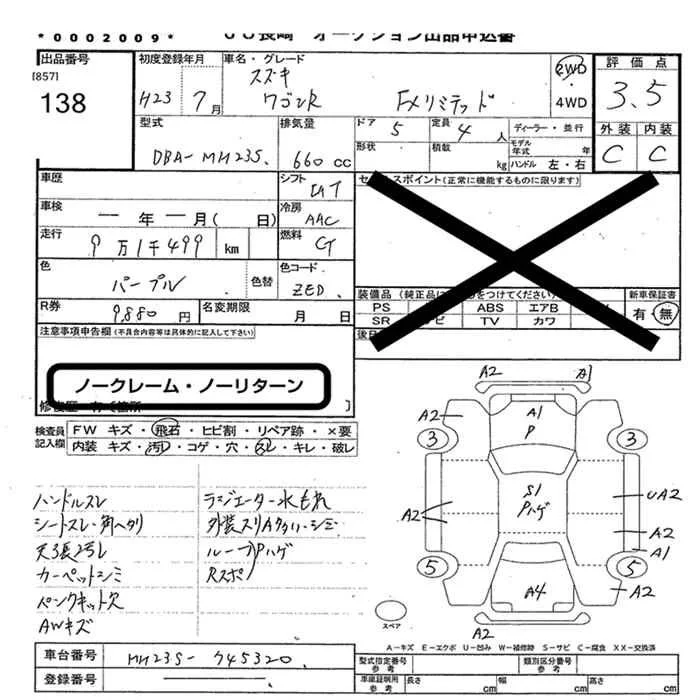 *0002009* JU長崎 オークション出品申込書
出品番号 初度登録年月 車名・グレード 2WD 評価点
[857] スズキ
138 H23 7月 ワゴンR FXリミテッド 4WD 3.5
型式 排気量 ドア 5 定員 4人 ディーラー・並行 外装 内装
形状 積載 kg モデル年式 年
DBA-MH23S 660cc ハンドル 左・右 C C
車歴 シフト AT セールスポイント(正常に機能するものに限ります)
車検 ー年ー月( 日) 冷房 AAC
走行 9万1千499 km 燃料 G
色 パープル 色替 色コード ZED
装備品 新車保証書
PS ABS エアB 有・無
SR TV カワ
R券 9,880円 名変期限 月 日
注意事項申告欄(不具合内容等は具体的に記入して下さい)
ノークレーム・ノーリターン
検査員記入欄 FW キズ・飛石・ヒビ割・リペア跡・×要
内装 キズ・汚れ・コゲ・穴・スレ・キレ・破レ
ハンドルスレ ラジエーター水もれ
シートスレ・角ヘタリ
ルーフPハゲ
カーペットシミ Rスポ
パンクキット欠
AWキズ
A2 A1
A2 A1 A2
P
3 3
S1 UA2
Pハゲ
A2 A2
A1
5 5
A4 A2
A2
スペア
A-キズ E-エクボ U-凹み W-補修跡 S-サビ C-腐食 XX-交換済
車台番号 MH23S-745320
登録番号
型式指定番号 参考 類別区分番号 参考
車庫証明用 参考 長さ cm 幅 cm 高さ cm